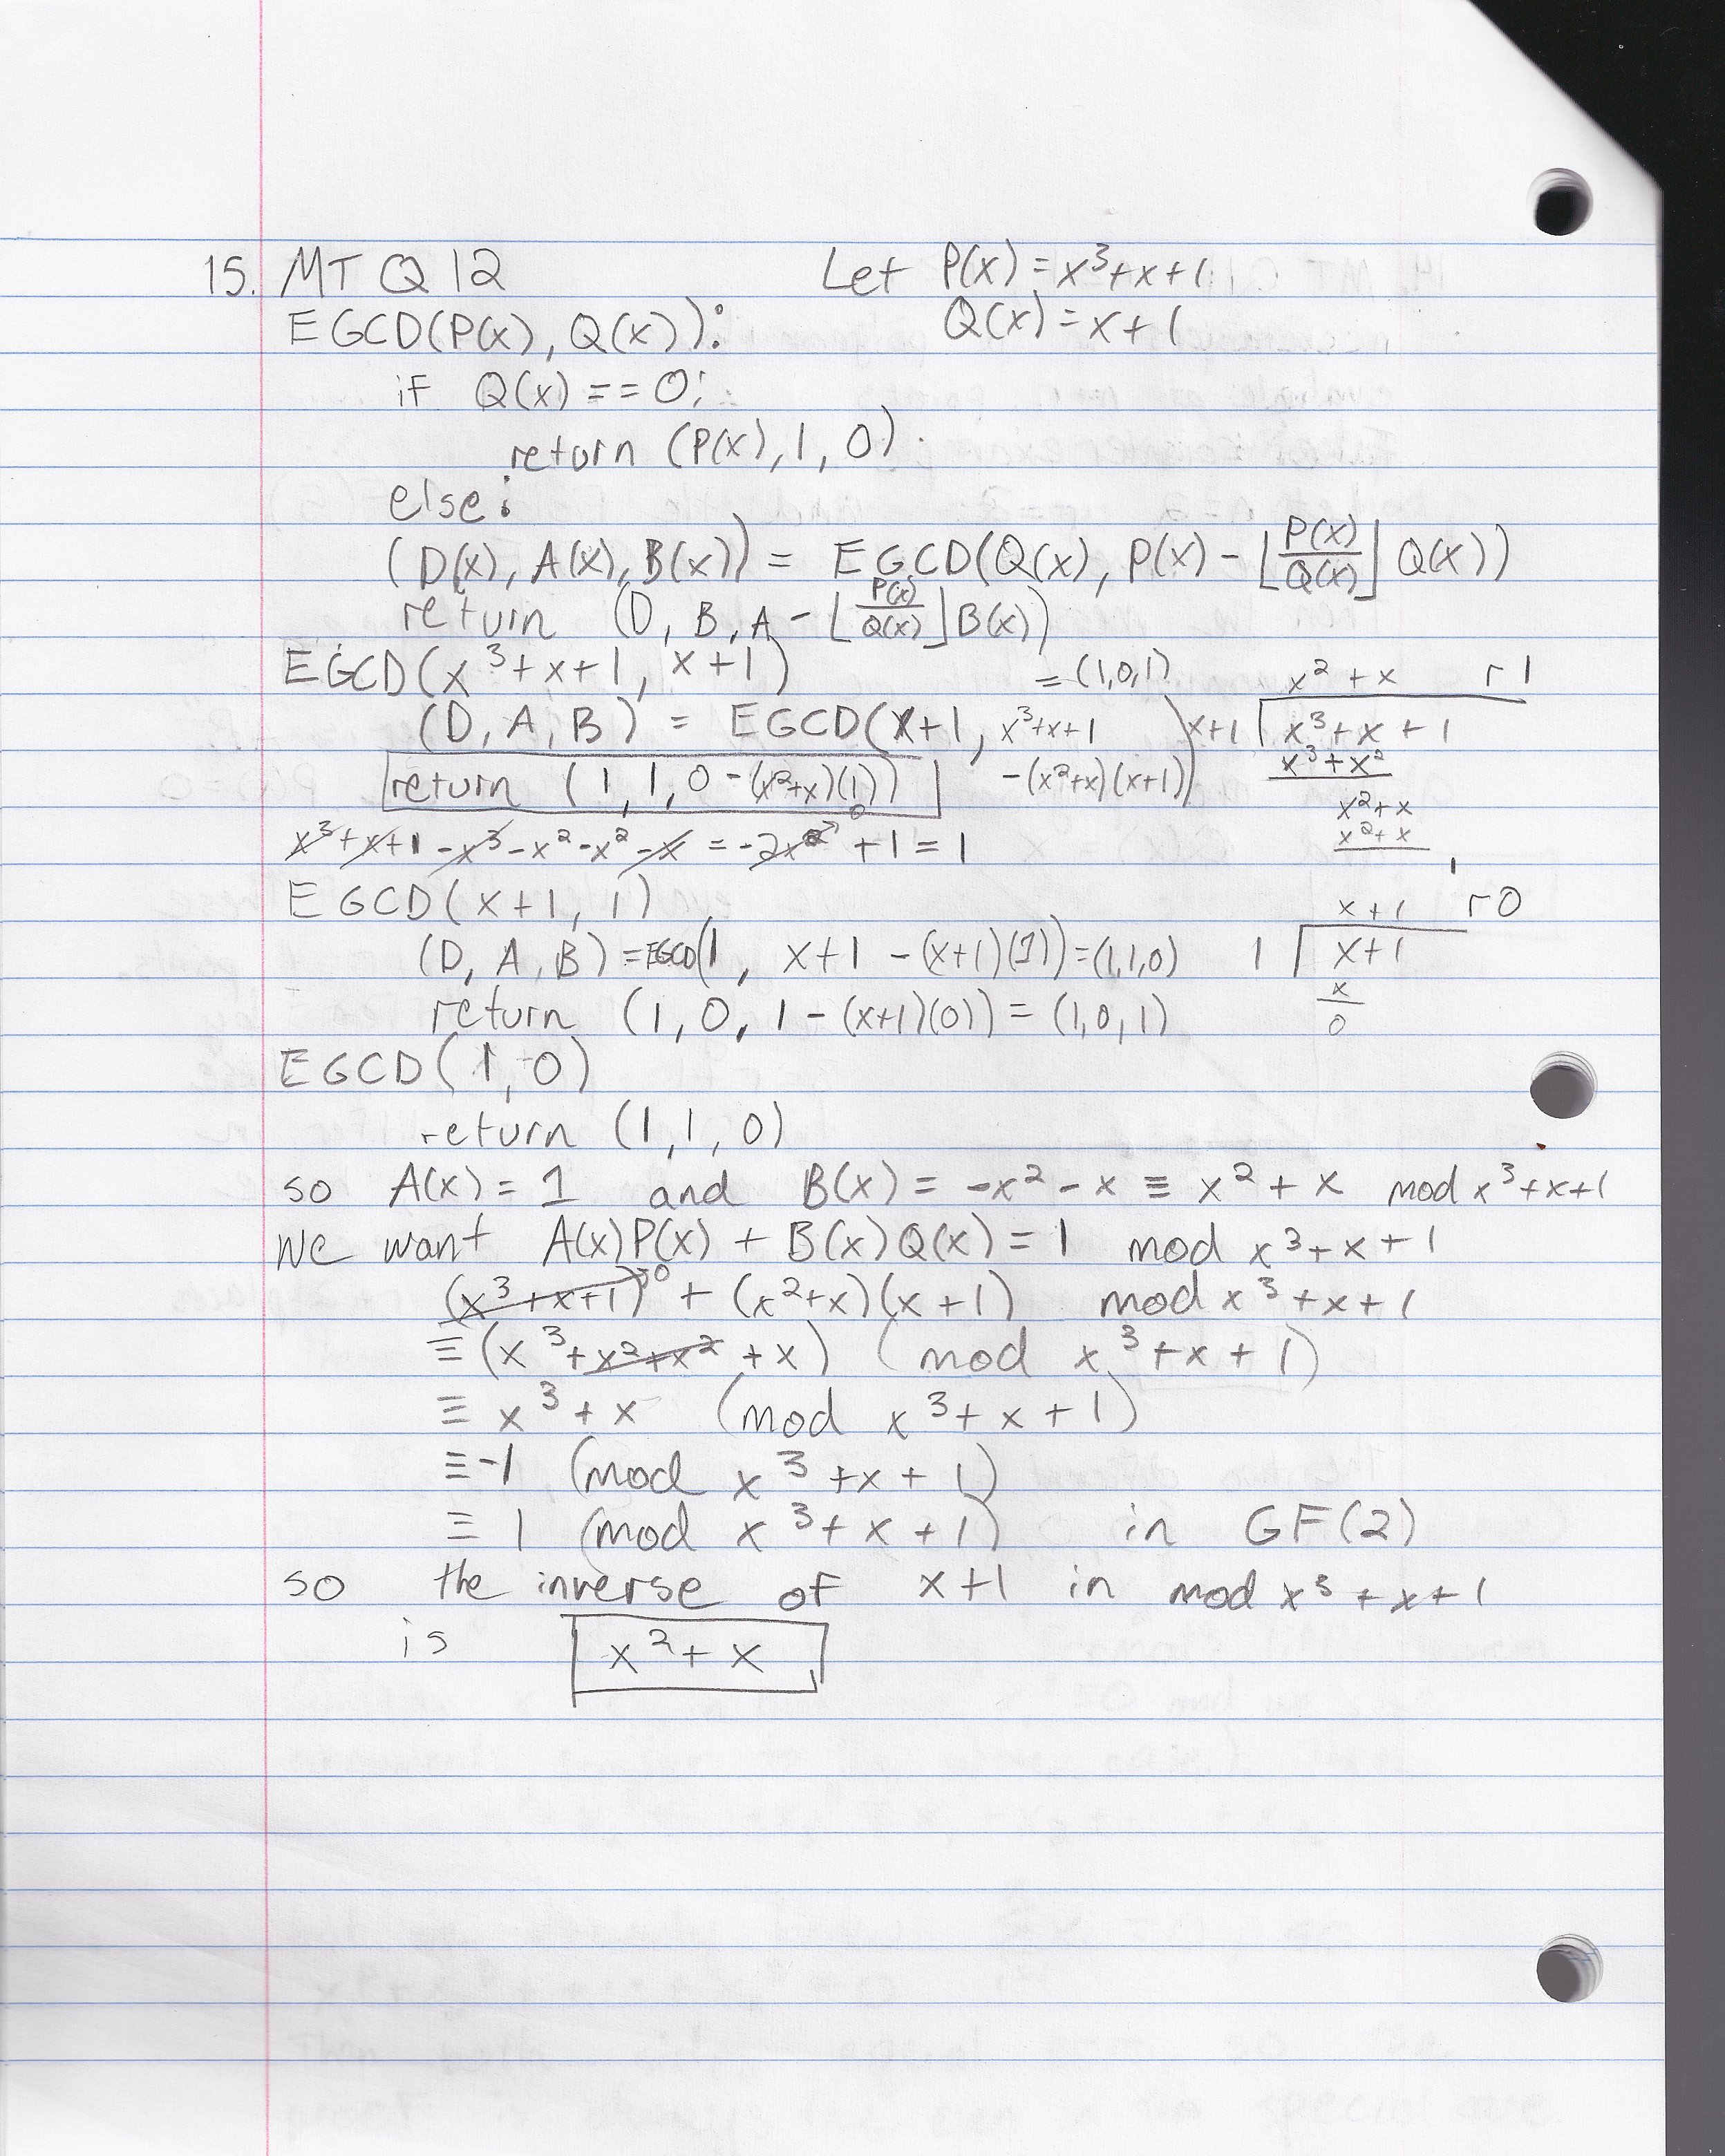 15. MT Q 12 Let P(x) = x³+x+1
Q(x) = x+1
EGCD(P(x), Q(x)):
if Q(x) == 0:
return (P(x), 1, 0)
else:
(D(x), A(x), B(x)) = EGCD(Q(x), P(x) - ⌊P(x)/Q(x)⌋ Q(x))
return (D, B, A - ⌊P(x)/Q(x)⌋B(x))
EGCD(x³+x+1, x+1) = (1,0,1)
(D, A, B) = EGCD(x+1, x³+x+1
-(x²+x)(x+1))
return (1, 1, 0-(x²+x)(1))
x³+x+1-x³-x²-x²-x = -2x² 0 +1 = 1
x²+x r1
x+1 x³+x+1
x³+x²
x²+x
x²+x
1
EGCD(x+1, 1)
(D, A, B) = EGCD(1, x+1 -(x+1)(1)) = (1,1,0)
return (1, 0, 1-(x+1)(0)) = (1,0,1)
x+1 r0
1 x+1
x
0
EGCD(1, 0)
return (1, 1, 0)
so A(x) = 1 and B(x) = -x²-x ≡ x²+x mod x³+x+1
we want A(x)P(x) + B(x)Q(x) = 1 mod x³+x+1
(x³+x+1) 0 + (x²+x)(x+1) mod x³+x+1
≡ (x³+x²+x²+x) (mod x³+x+1)
≡ x³+x (mod x³+x+1)
≡ -1 (mod x³+x+1)
≡ 1 (mod x³+x+1) in GF(2)
so the inverse of x+1 in mod x³+x+1
is x²+x